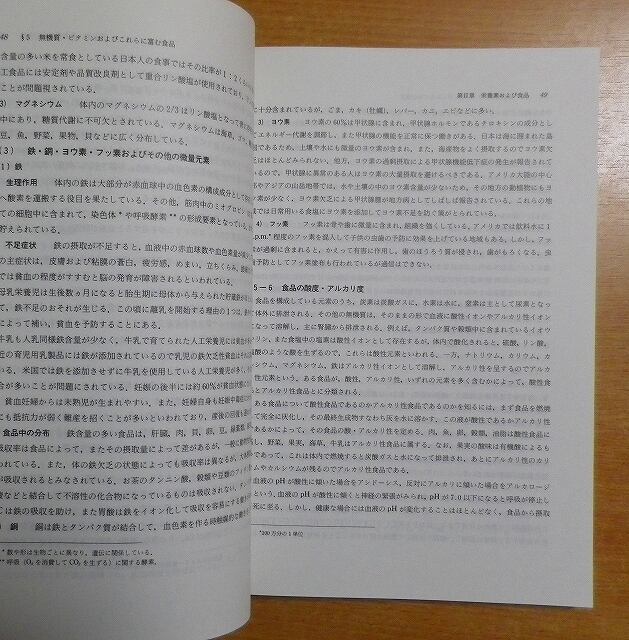 48 §5 無機質・ビタミンおよびこれらに富む食品
含量の多い米を常食としている日本人の食事ではその比率が1:2くらい
工食品には安定剤や品質改良剤として重合リン酸塩が使用されており
ことが問題視されている。
3) マグネシウム 体内のマグネシウムの2/3はリン酸塩となって
中にあり、糖質代謝に不可欠とされている。マグネシウムは海草
豆、魚、野菜、果物、貝などに広く分布している。
(3) 鉄・銅・ヨウ素・フッ素およびその他の微量元素
1) 鉄
生理作用 体内の鉄は大部分が赤血球中の血色素の構成成分として
へ酸素を運搬する役目を果たしている。その他、筋肉中のミオグロビン
ての細胞中に含まれて、染色体*や呼吸酵素**の形成要素となっている
貯えられている。
不足症状 鉄の摂取が不足すると、血液中の赤血球数や血色素量が
の主症状は、皮膚および粘膜の蒼白、疲労感、めまい、立ちくらみ、
では貧血の程度がすすむと脳の発育が障害されるといわれている。
母乳栄養児は生後数ヵ月になると胎生期に母体から与えられた貯蔵鉄が
て、鉄不足のおそれが生じる。この頃に離乳を開始する理由の1つは、
によって補い、貧血を予防することにある。
牛乳も人乳同様鉄含量が少なく、牛乳で育てられた人工栄養児には
近の育児用乳製品には鉄が添加されているので乳児の鉄欠乏性貧血は
いる。米国では鉄を添加させずに牛乳を使用している人工栄養児が多く、
合が多いことが問題にされている。妊娠の後半には約60%が貧血状態
貧血妊婦からは未熟児が生まれやすい。また、妊婦自身も妊娠中毒症
にも抵抗力が弱く難産を招くことが多いといわれており、産後の回復も
食品中の分布 鉄含量の多い食品は、肝臓、肉、貝、卵、豆、緑葉類、
吸収率は食品によって、またその摂取量によって差があるが、一般に動物性
れている。また、体の鉄欠乏の状態によっても吸収率は異なるが、
が吸収されるとみなされている。お茶のタンニン酸、穀類や豆類のフィチン
酸などと結合して不溶性の化合物になっているものは吸収されない。
Cは鉄の吸収を助け、また胃酸は鉄をイオン化して吸収を容易にする
2) 銅 銅は鉄とタンパク質が結合して、血色素を作る時触媒的な
* 数や形は生物ごとに異なり、遺伝に関係している。
** 呼吸(O₂を消費してCO₂を生ずる)に関する酵素。
第II章 栄養素および食品 49
に十分含まれているが、ごま、カキ(牡蠣)、レバー、カニ、エビなどに多い。
3) ヨウ素 ヨウ素の60%は甲状腺に含まれ、甲状腺ホルモンであるチロキシンの成分とし
てエネルギー代謝を調節し、また甲状腺の機能を正常に保つ働きがある。日本は海に囲まれた島
国であるため、土壌や水にも微量のヨウ素が含まれ、また、海産物をよく摂取するのでヨウ素欠
とはほとんどみられない。他方、ヨウ素の過剰摂取による甲状腺機能低下症の発生が報告されて
いるので、甲状腺に異常のある人はヨウ素の大量摂取を避けるべきである。アメリカ大陸の中心
部やアジアの山岳地帯では、水や土壌の中のヨウ素含量が少ないため、その地方の動植物にもヨ
ウ素が少なく、ヨウ素欠乏による甲状腺肥大が地方病としてしばしば報告されている。これらの地
では日常用いる食塩にヨウ素を添加してヨウ素不足を防ぐ策がとられている。
4) フッ素 フッ素は骨や歯に微量に含まれ、組織を強くしている。アメリカでは飲料水に1
p.m.*程度のフッ素を混入して子供の虫歯の予防に効果を上げている地域もある。しかし、フッ
が過剰に含まれると、かえって有害に作用し、歯のほうろう質が侵され、歯がもろくなる。虫
予防としてフッ素塗布も行われているが過信はできない。
5-6 食品の酸度・アルカリ度
食品を構成している元素のうち、炭素は炭酸ガスに、水素は水に、窒素は主として尿素となっ
て体外に排泄される。その他の無機質は、そのままの形で血液に酸性イオンやアルカリ性イオン
になって溶解し、主に腎臓から排泄される。例えば、タンパク質や穀類中に含まれているイオウ
リン、また食塩中の塩素は酸性イオンとして存在するが、体内で酸化されると、硫酸、リン酸、
酸のような酸を生ずるので、これらは酸性元素といわれる。一方、ナトリウム、カリウム、カ
シウム、マグネシウム、鉄はアルカリ性イオンとして溶解し、アルカリ性を呈するのでアルカ
性元素という。ある食品が、酸性、アルカリ性、いずれの元素を多く含むかによって、酸性食
とアルカリ性食品とに分類される。
ある食品について酸性食品であるのかアルカリ性食品であるのかを知るには、まず食品を燃焼
て完全に灰化し、その最終生成物すなわち灰を水に溶かす。この液が酸性であるかアルカリ性
あるかによって、その食品の酸性、アルカリ性を定める。肉、魚、卵、穀類、油脂は酸性食品に
し、野菜、果実、海草、牛乳はアルカリ性食品に属する。なお、果実の酸味は有機酸によるも
であって、これは体内で燃焼すると炭酸ガスと水になって排泄され、あとにアルカリ性のカリ
ムやカルシウムが残るのでアルカリ性食品である。
血液のpHが酸性に傾いた場合をアシドーシス、反対にアルカリに傾いた場合をアルカロージ
という。血液のpHが酸性に傾くと神経の緊張がみられ、pHが7.0以下になると呼吸が停止し
死に至る。しかし、健康な場合には血液のpHが変化することはほとんどなく、食品から摂取
*100万分の1単位